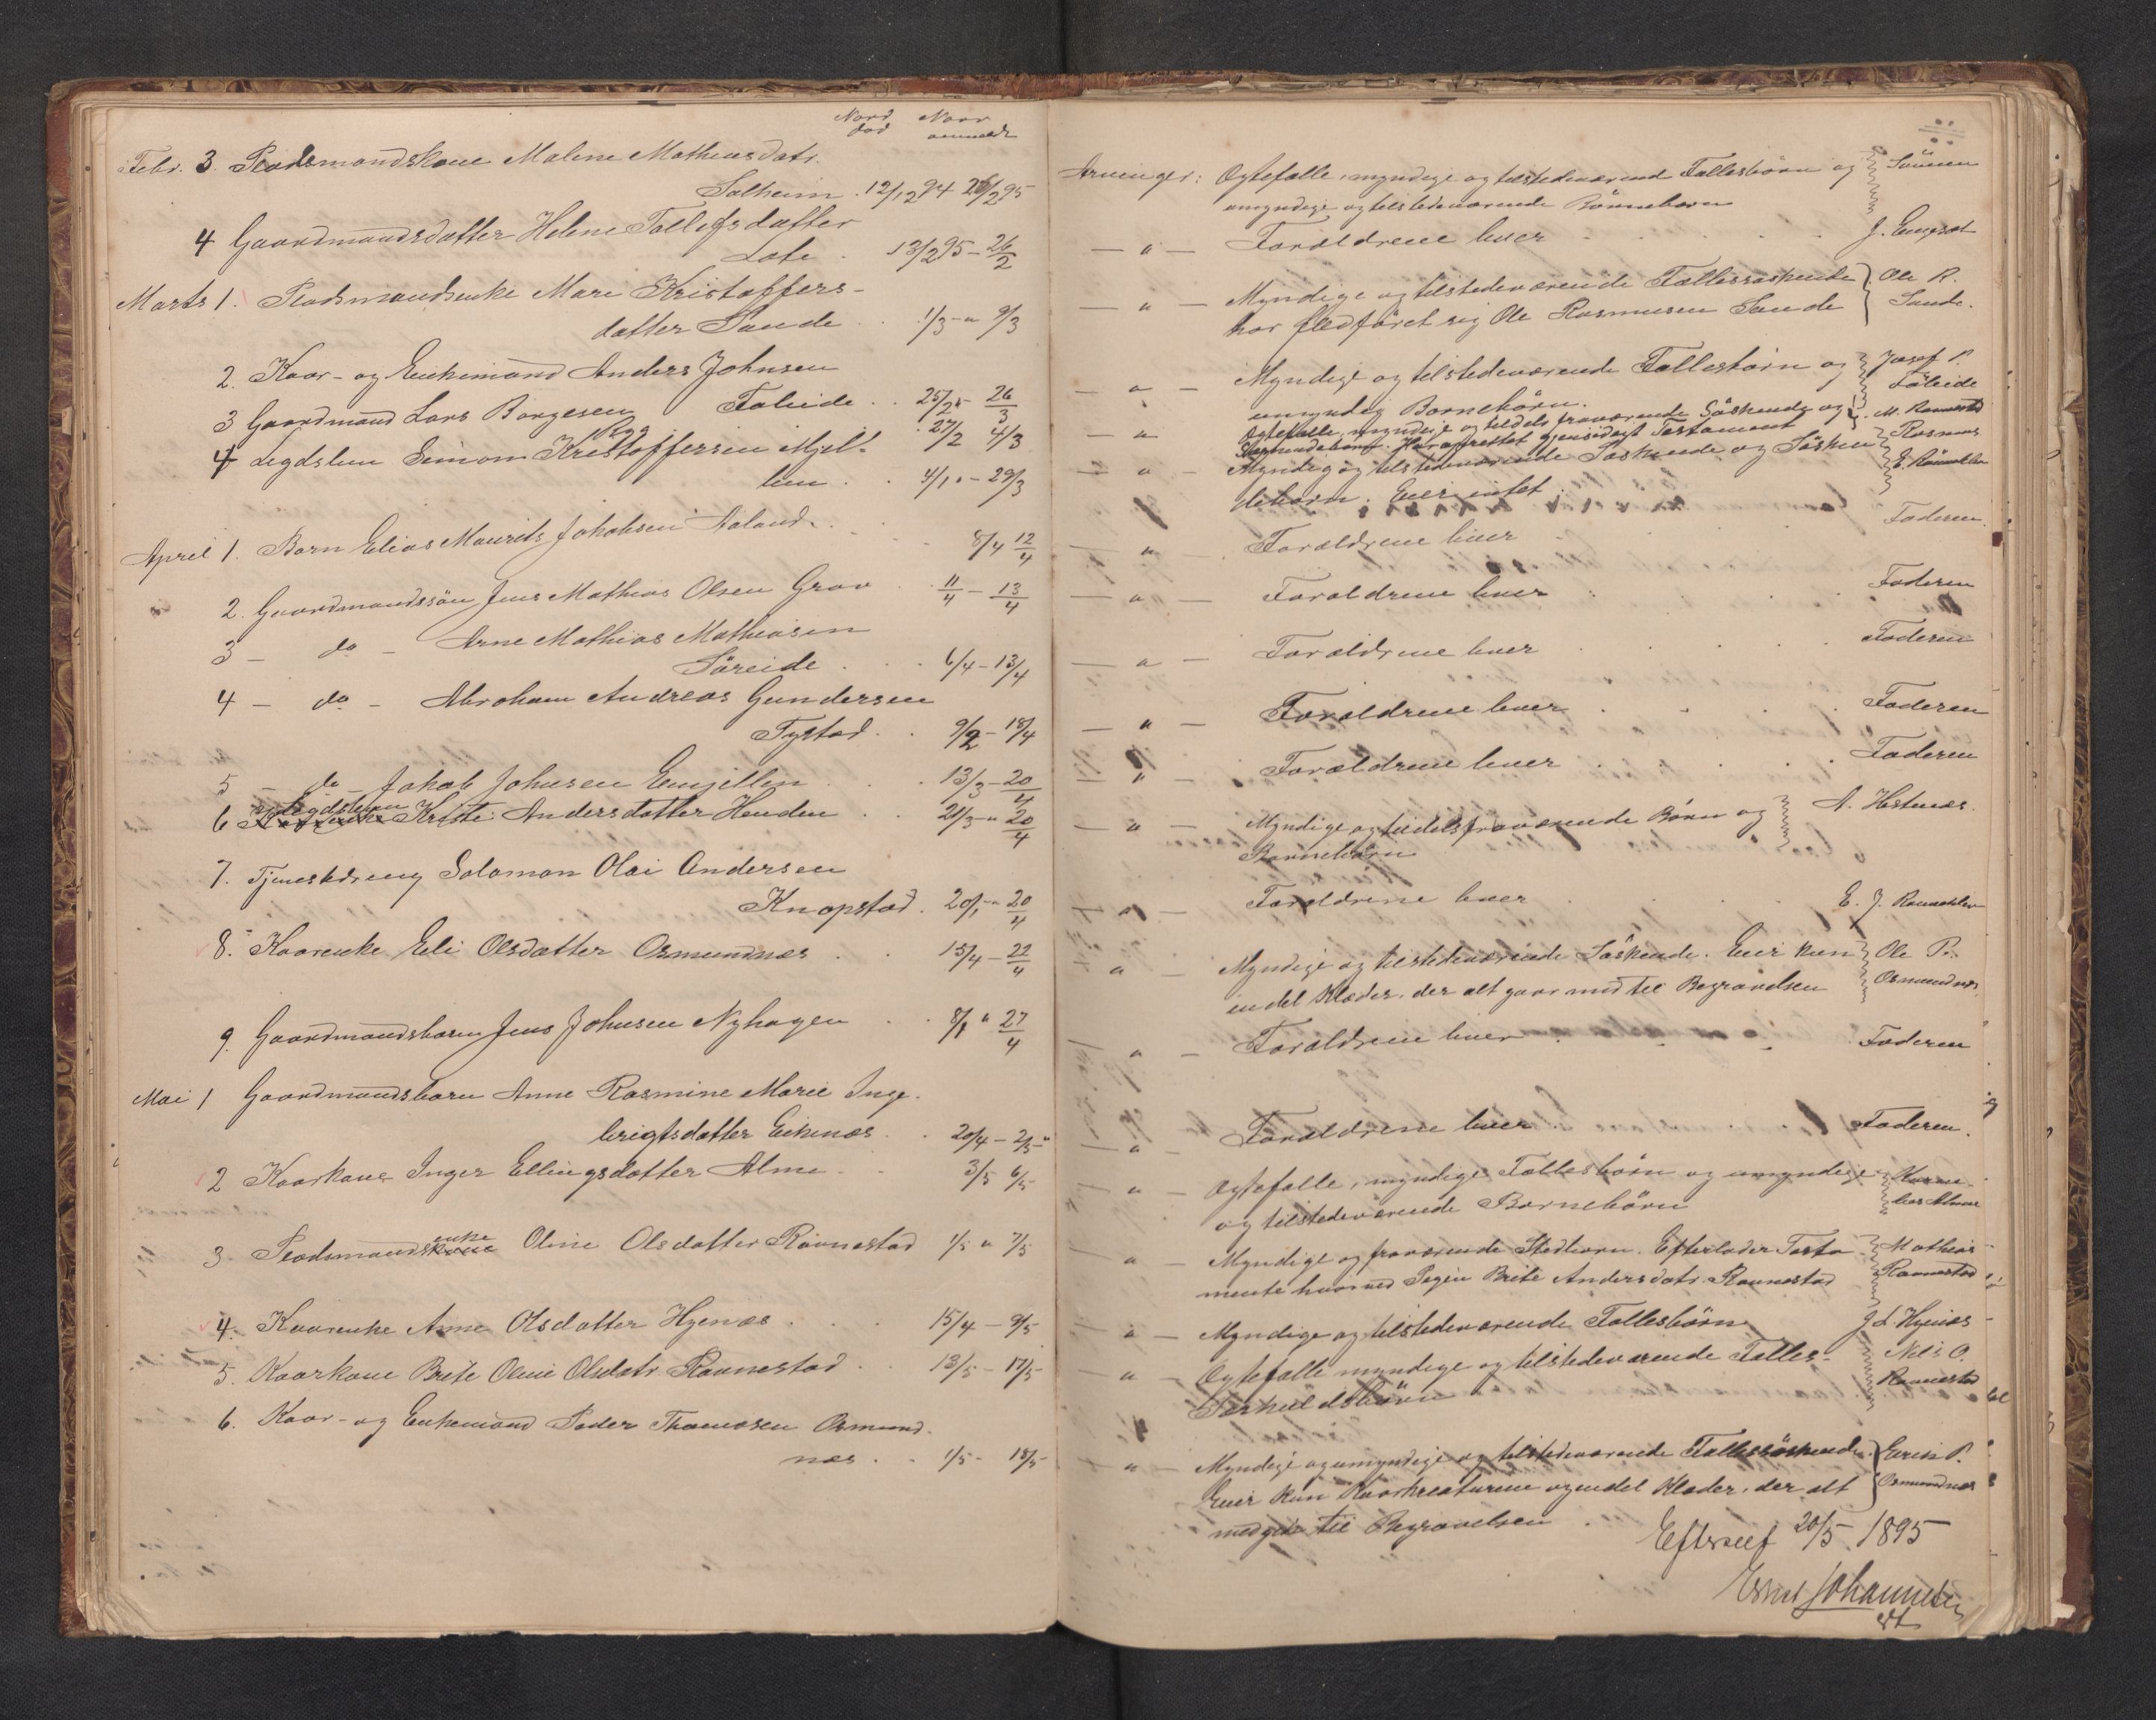 Naar død Naar anmeldt
Febr. 3. Pladsmandskone Malene Mathiasdatr.
Solheim . 12/12 94 26/2 95
4 Gaardmandsdatter Helene Tollefsdatter
Lote . 13/2 95 - 26/2
Marts 1. Pladsmandsenke Mari Kristoffers-
datter Sande . . 1/3 - " 9/3
2. Kaar- og Enkemand Anders Johnsen
Føleide . . 25/2 - 26/3
3 Gaardmand Lars Børgesen Rygg . 27/2 4/3
4 Legdslem Simon Kristoffersen Mjel-
lem . . 4/1 " - 29/3
April 1. Barn Elias Maurits Jakobsen Aaland . . . 8/4 12/4
2. Gaardmandssøn Jens Mathias Olsen Grov . 11/4 - 13/4
3 - do - Arne Mathias Mathiasen
Søreide . . . 6/4 - 13/4
4 - do - Abraham Andreas Gundersen
Tystad . . 9/2 - 18/4
5 - do - Jakob Johnsen . . 13/3 - 20/4
6 Legdslem Andersdatter Henden . . 21/3 - " 20/4
7. Tjenestedreng Salamon Olai Andersen
Knapstad . 20/1 - " 20/4
8. Kaarenke Eli Olsdatter Osmundnæs . . 15/4 - 22/4
9. Gaardmandsbarn Jens Johnsen Nyhagen . . 8/1 " 27/4
Mai 1 Gaardmandsbarn Anne Rasmine Marie Inge-
brigtsdatter Eikenæs . . 20/4 - 2/5 - "
2 Kaarkone Inger Ellingsdatter Alme . . 3/5 6/5
3. Pladsmandskone enke Oline Olsdatter Ravnestad 1/5 " 7/5
4. Kaarenke Anne Olsdatter Hyenæs . . . 15/4 - 9/5
5. Kaarkone Brite Oline Olsdatr. Ravnestad . . 13/5 - 17/5
6. Kaar- og Enkemand Peder Thomasen Osmund-
næs . . 1/5 - 18/5
Arvinger: Ægtefælle, myndige og tilstedeværende Fællesbørn og Sønnen
umyndige og tilstedeværende Børnebørn
— " — Forældrene lever . . . . J.
— " — Myndige og tilstedeværende Fællessøskende Ole R.
har fledføret sig Ole Rasmusen Sande Sande.
— " — Myndige og tilstedeværende Fællesbørn og Josef P.
umyndig Barnebørn. Føleide
— " — Ægtefælle, myndige og tildels fraværende Søskende og M. Ravnestad
Søskendebørn. Har oprettet gjensidigt Testament
— " — Myndig og tilstedeværende Søskende og Søsken- Rasmus
debørn. Eier intet.
— " — Forældrene lever Faderen
— " — Forældrene lever . . . Faderen
— " — Forældrene lever . . . Faderen
— " — Forældrene lever . . . Faderen
— " — Forældrene lever . . . Faderen
— " — Myndige og tildels fraværende Børn og A. Hestnæs
Børnebørn
— " — Forældrene lever . . E. J.
— " — Myndige og tilstedeværende Søskende. Eier kun Ole P.
endel Klæder, der alt gaar med til Begravelsen Osmundnæs
— " — Forældrene lever . . . Faderen
— " — Forældrene lever . Faderen.
— " — Ægtefælle, myndige Fællesbørn og umyndige
og tilstedeværende Børnebørn Alme
— " — Myndige og fraværende Stedbørn. Efterlader Testa- Mathias
mente hvorved Pigen Brite Andersdatr. Ravnestad Ravnestad
— " — Myndige og tilstedeværende Fællesbørn J. L. Hyenæs
— " — Ægtefælle myndige og tilstedeværende Fælles- Nils O.
Særkuldsbørn Ravnestad
— " — Myndige og umyndige og tilstedeværende Fællessøskende. P.
Eier kun Kaarkreaturene og endel Klæder, der alt Osmundnæs
medgik til Begravelsen .
Efterseet 20/5 1895
Johannessen